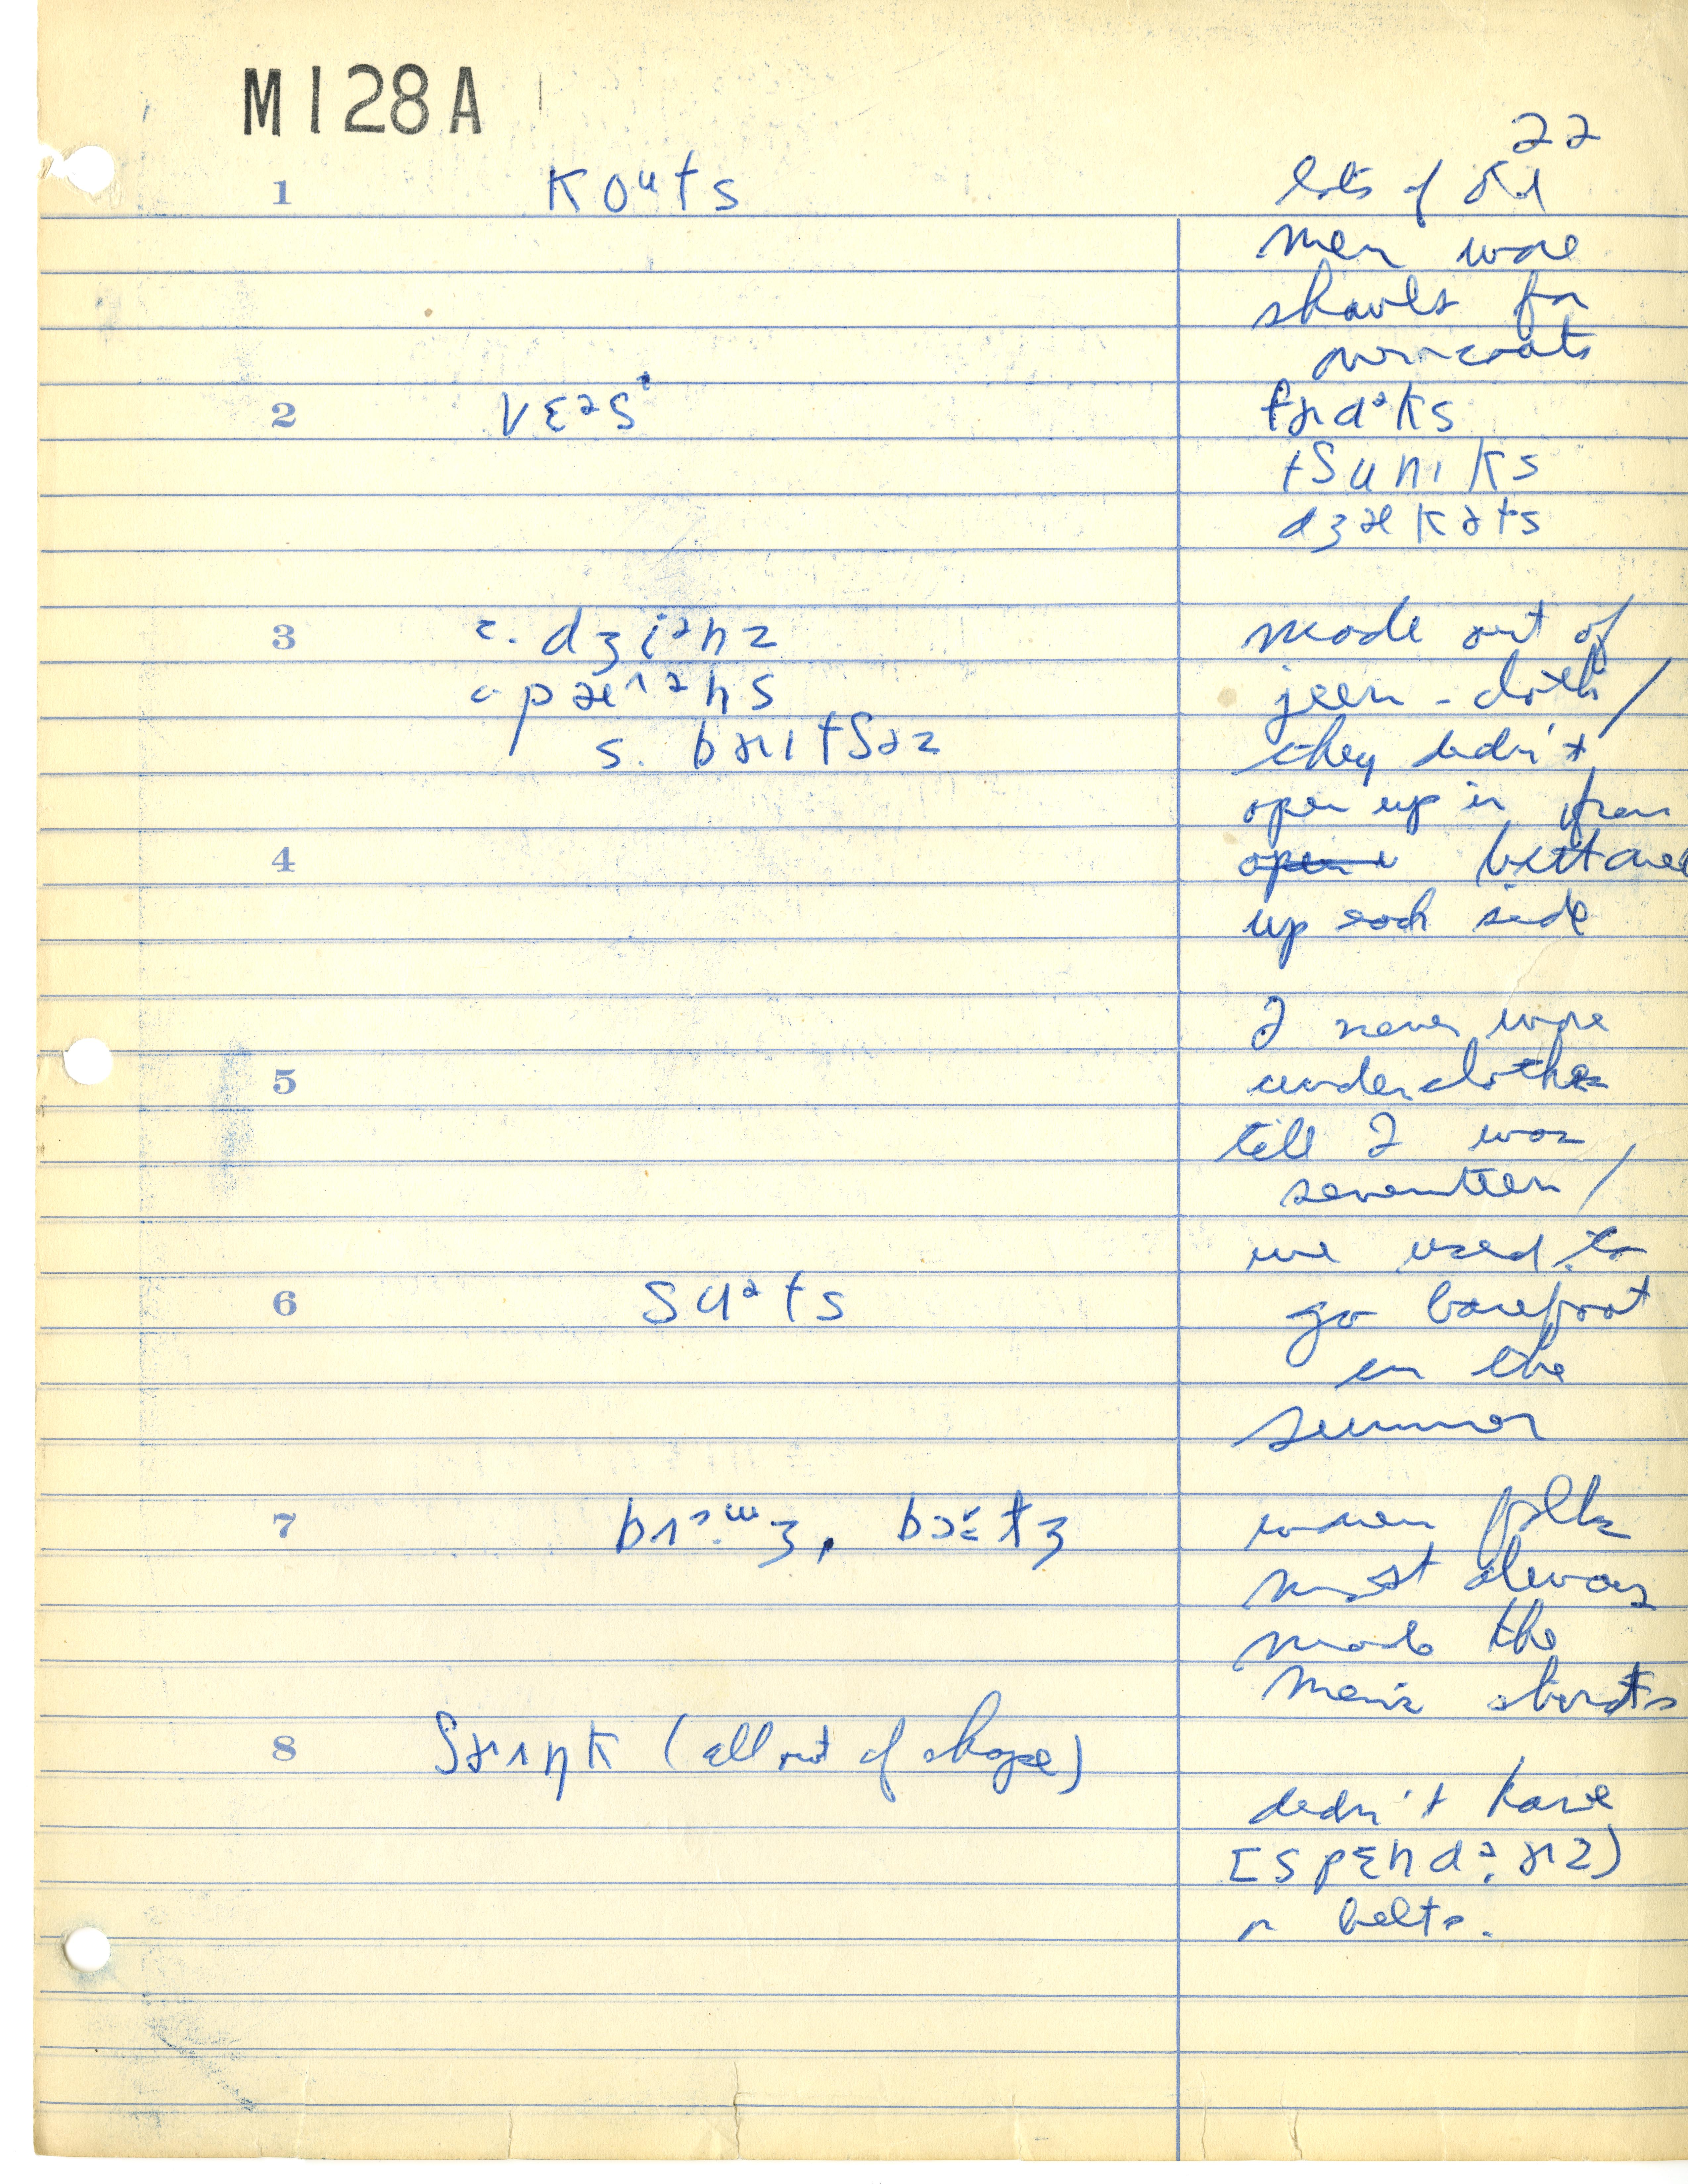 M128A
22
1 koᵘts
lots of old
men wore
shawls for
overcoats
2 vɛᵊsᵗ
frɑᵊks
tʃunɪks
dʒækəts
3 c. dʒiᵊnz
c. pæ^ᵊns
s. brɪtʃəz
made out of
jeen-cloth /
they didn't
open up in fron
4 open buttoned
up each side
5
I never wore
underclothes
till I was
seventeen /
we used to
6 suᵊts
go barefoot
in the
summer
7
women folks
most always
made the
men's shirts
8 ʃrɪŋk (all out of shape)
didn't have
[spɛndᵊrz]
or belts.